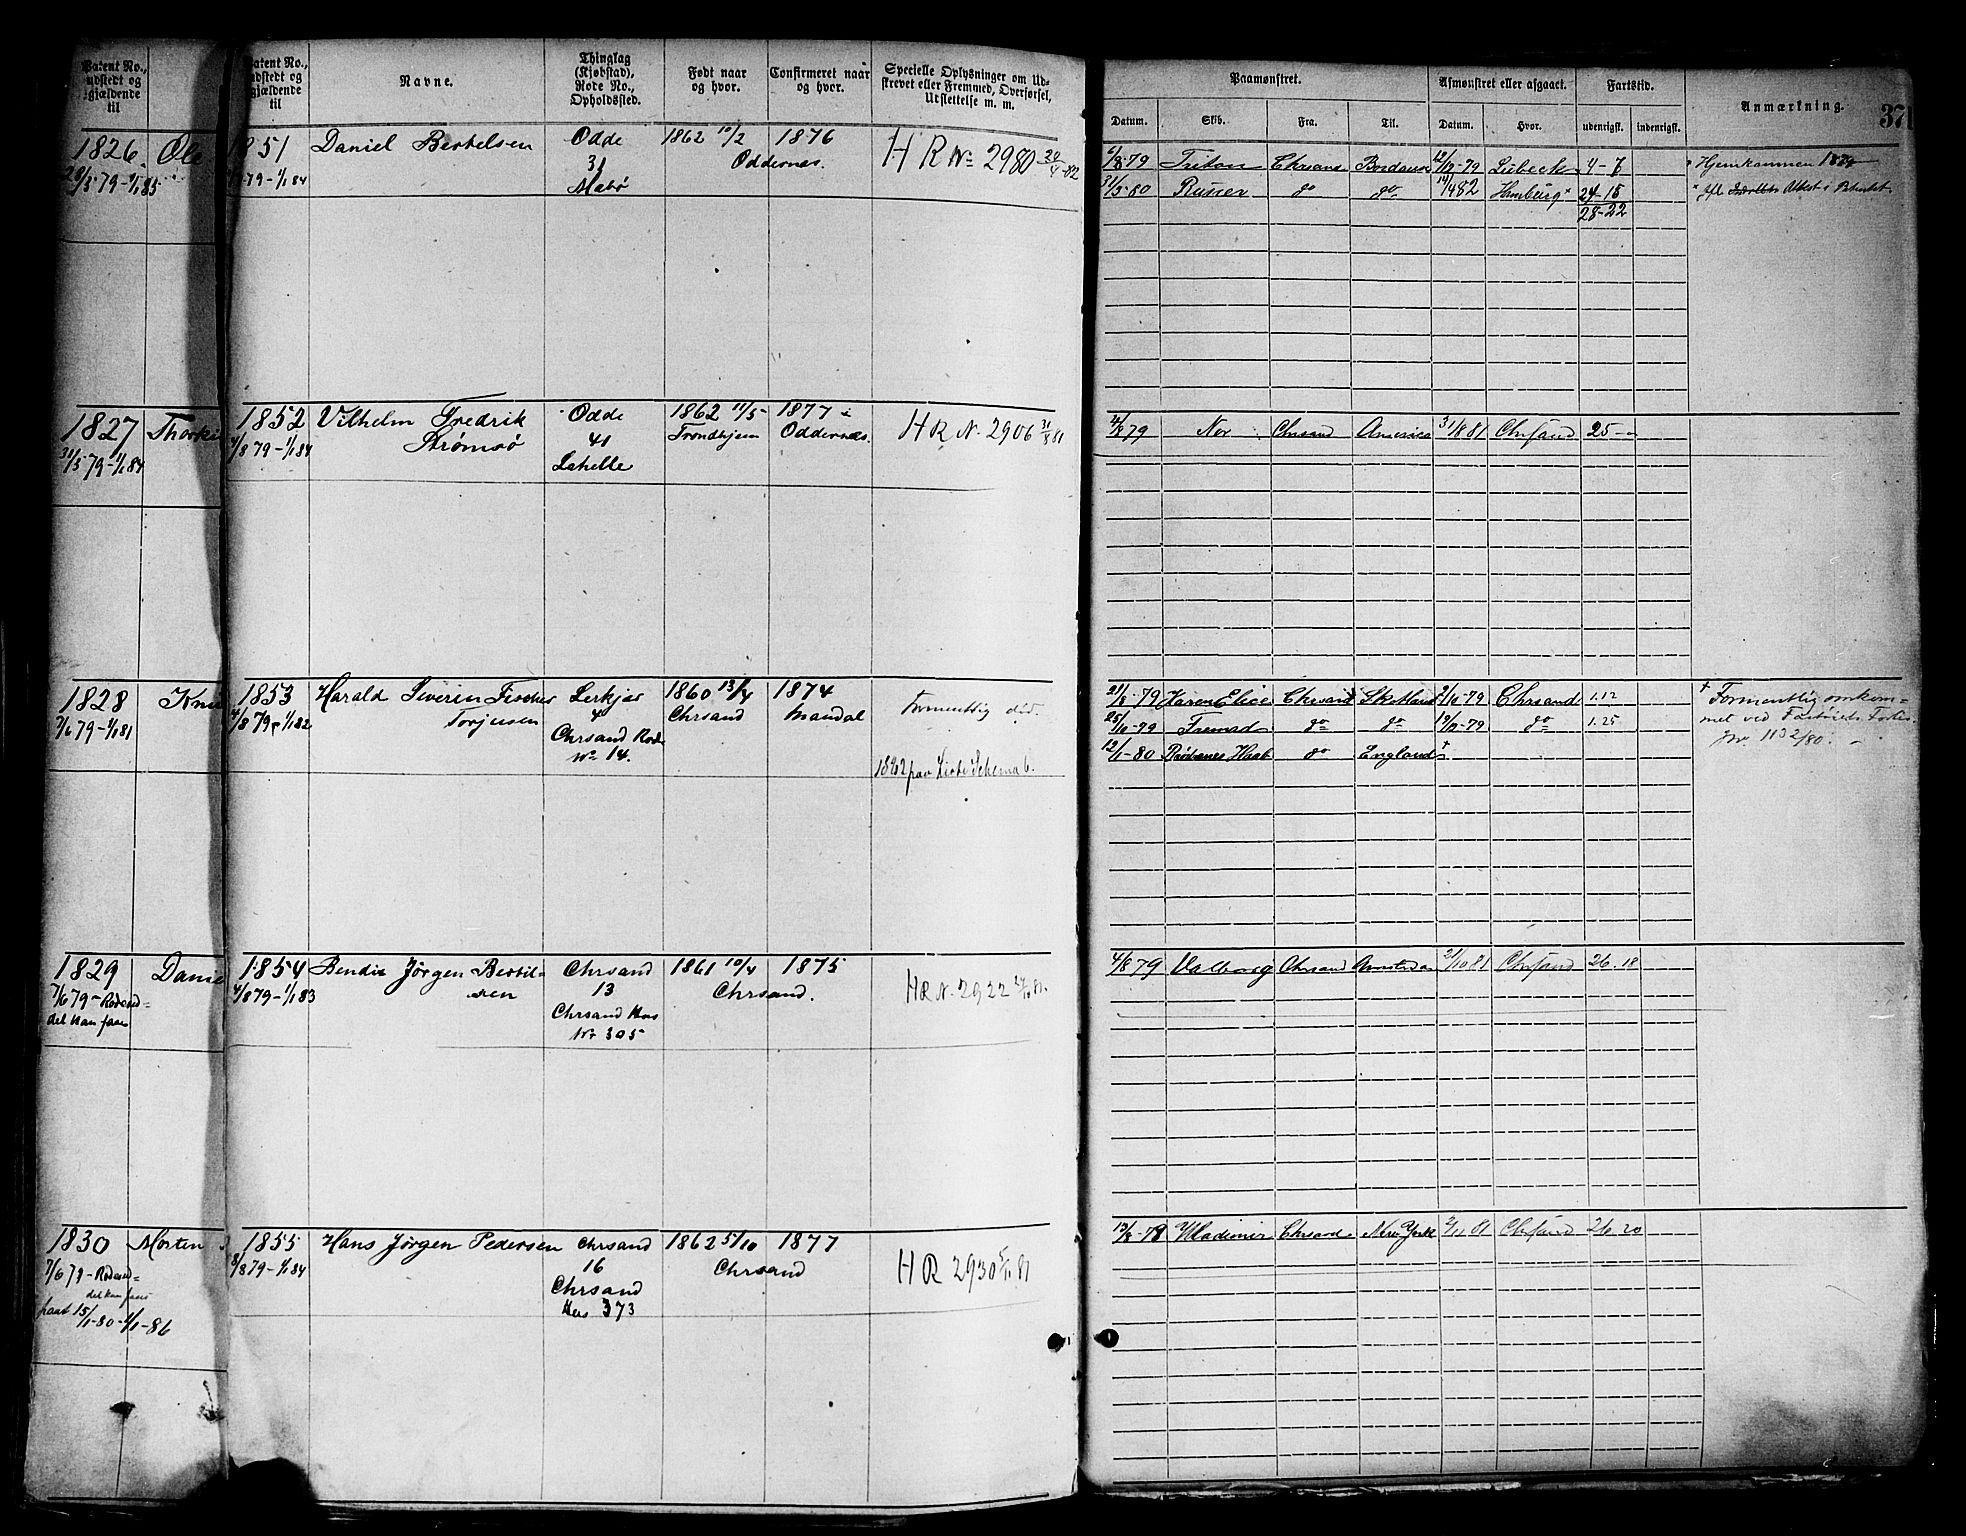 Patent No., udstedt og gjældende til
1826. Ole
28/5 79-1/1 85
1827 Thorki
31/5 79-1/1 84
1828 Knu
7/6 79-1/1 81
1829 Danie
7/6 79-Roden-
del kan faaes
1830 Morten
7/6 79-Roden-
del kan faaes
paat 15/1-80-1/1-86
Patent No., udstedt og gjældende til
Navne.
Thinglag (Kjøbstad), Rode No., Opholdssted.
Født naar og hvor.
Confirmeret naar og hvor.
Specielle Oplysninger om Udskrevet eller Fremmed, Overførsel, Udslettelse m. m.
Paamønstret.
Afmønstret eller afgaaet.
Fartstid.
Anmærkning.
371
Datum. Skib. Fra. Til. Datum. Hvor. udenrigsk. indenrigsk.
1851 Daniel Bertelsen Odde 1862 10/2 1876
79-1/1 84 31 Oddernæs.
HR No 2980
Triton Chrsand 12/12-79 Lübeck 4-7 Hjemkommen 1879
31/5-80 Russer do do 14/4 82 Hamburg 24-15
28-22
1852 Vilhelm Fredrik Odde 1862 11/5 1877
4/8 79-1/1 84 Strømsø 41 Trondhjem Oddernæs.
Lahelle
HR N. 2906 31/8 81
4/8 79 Nor Chrsand America 31/8 81 Chrsand 25-
1853 Harald Severin Fischer Lerkjær 1860 13/4 1874
4/8 79-1/1 82 Torjusen 4 Chrsand Mandal
Chrsand Rode
No 14.
Formentlig død.
21/8-79 Karen Elise Chrsand Skotland 2/10-79 Chrsand 1.12
25/10-79 Fremad do do 19/12-79 do 1.25
12/1-80 Brødrenes Haab do England †
† Formentlig omkom-
met ved Forliis.
Jnr. 1132/80.
1854 Bendix Jørgen Bertel- Chrsand 1861 10/4 1875
4/8 79-1/1 83 sen 13 Chrsand.
Chrsand Hus
No 305
HR N. 2922 21/10 81.
4/8 79 Valborg Chrsand Amsterdam 21/10 81 Chrsand 26.18
1855 Hans Jørgen Pedersen Chrsand 1862 5/10 1877
8/8 79-1/1 84 16 Chrsand
Chrsand
Hus 373
HR 2930 5/11 81
13/8-79 Wladimir Chrsand New York Chrsand 26.20